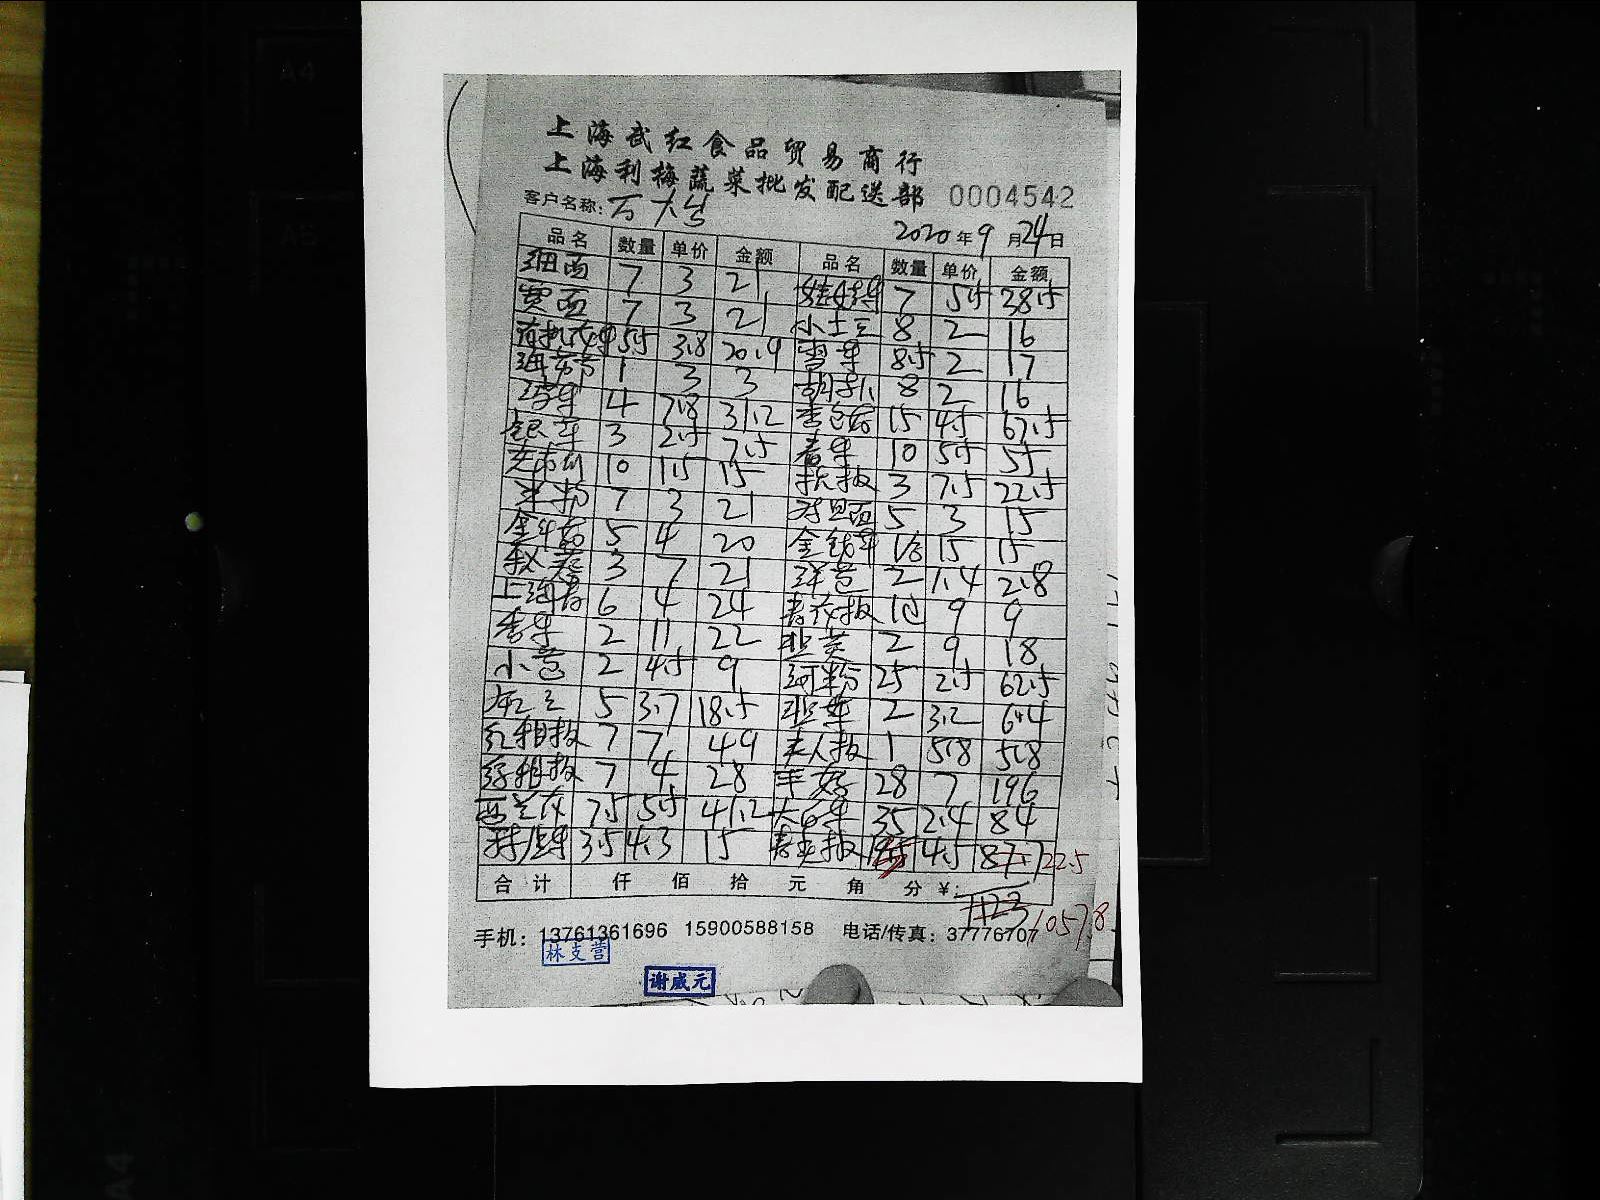 上海武红食品贸易商行
上海利梅蔬菜批发配送部 0004542
客户名称：万大
2020年9月24日
品名 数量 单价 金额 品名 数量 单价 金额
细面 7 3 21 娃娃菜 7 5.5 38.5
宽面 7 3 21 小土豆 8 2 16
有机花菜 5.5 3.8 20.9 雪菜 8.5 2 17
1 3 3 胡 8 2 16
4 7.8 31.2 15 4.5 67.5
银芽 3 2.5 7.5 10 5.5 55
10 1.5 15 杭椒 3 7.5 22.5
米粉 7 3 21 5 3 15
金针菇 5 4 20 金针菜 1 15 15
3 7 21 洋葱 2 1.4 2.8
上海青 6 4 24 1 9 9
香菜 2 11 22 韭黄 2 9 18
小葱 2 4.5 9 河粉 25 2.5 62.5
5 3.7 18.5 韭菜 2 3.2 6.4
红椒 7 7 49 美人椒 1 5.8 5.8
7 4 28 28 7 196
西兰花 7.5 5.5 41.2 大白菜 35 2.4 84
3.5 4.3 15 青尖椒 19.5 5 4.5 87.7 22.5
合计 仟 佰 拾 元 角 分 ¥：1123 1057.8
手机：13761361696 15900588158 电话/传真：37776707
林支营
谢威元